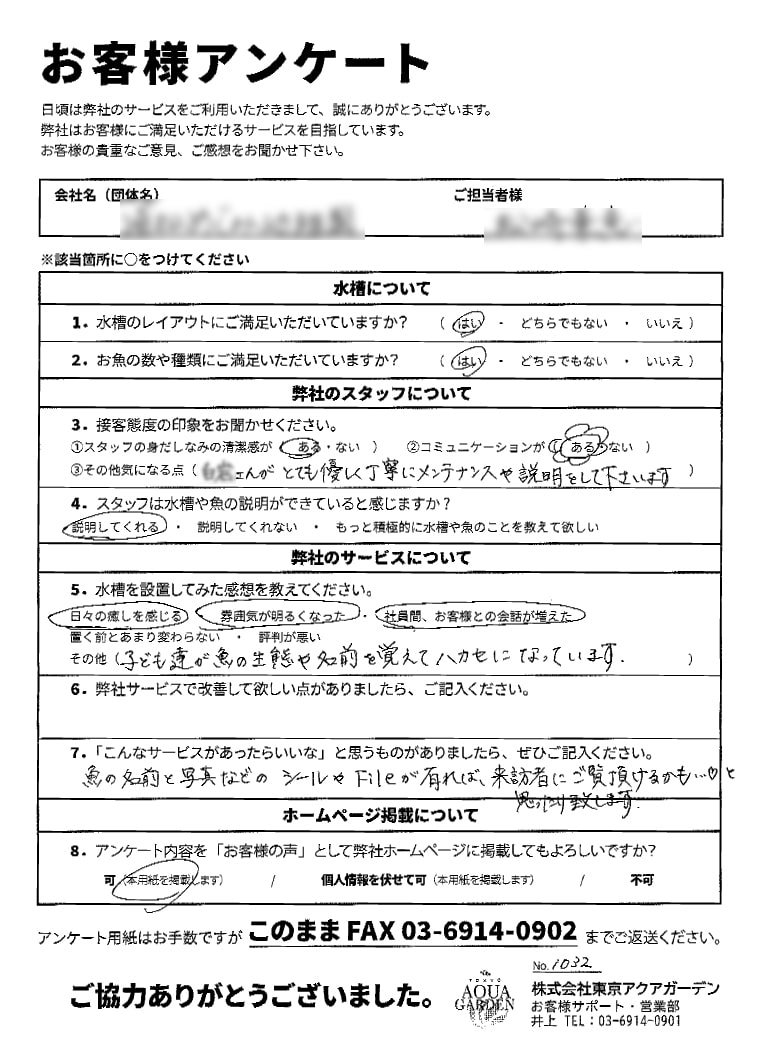 お客様アンケート
日頃は弊社のサービスをご利用いただきまして、誠にありがとうございます。
弊社はお客様にご満足いただけるサービスを目指しています。
お客様の貴重なご意見、ご感想をお聞かせ下さい。
会社名（団体名） ご担当者様
※該当箇所に○をつけてください
水槽について
1. 水槽のレイアウトにご満足いただいていますか？ （ はい ・ どちらでもない ・ いいえ ）
2. お魚の数や種類にご満足いただいていますか？ （ はい ・ どちらでもない ・ いいえ ）
弊社のスタッフについて
3. 接客態度の印象をお聞かせください。
①スタッフの身だしなみの清潔感が（ ある・ない ） ②コミュニケーションが（ ある・ない ）
③その他気になる点（ さんが とても優しく丁寧にメンテナンスや説明をして下さいます ）
4. スタッフは水槽や魚の説明ができていると感じますか？
説明してくれる ・ 説明してくれない ・ もっと積極的に水槽や魚のことを教えて欲しい
弊社のサービスについて
5. 水槽を設置してみた感想を教えてください。
日々の癒しを感じる ・ 雰囲気が明るくなった ・ 社員間、お客様との会話が増えた
置く前とあまり変わらない ・ 評判が悪い
その他（ 子ども達が魚の生態や名前を覚えてハカセになっています. ）
6. 弊社サービスで改善して欲しい点がありましたら、ご記入ください。
7. 「こんなサービスがあったらいいな」と思うものがありましたら、ぜひご記入ください。
魚の名前と写真などの シールや Fileが有れば、来訪者にご覧頂けるかも…♡と
思ったり致します.
ホームページ掲載について
8. アンケート内容を「お客様の声」として弊社ホームページに掲載してもよろしいですか？
可（本用紙を掲載します） / 個人情報を伏せて可（本用紙を掲載します） / 不可
アンケート用紙はお手数ですが このまま FAX 03-6914-0902 までご返送ください。
No. 1032
ご協力ありがとうございました。
TOKYO
AQUA
GARDEN
株式会社東京アクアガーデン
お客様サポート・営業部
井上 TEL：03-6914-0901